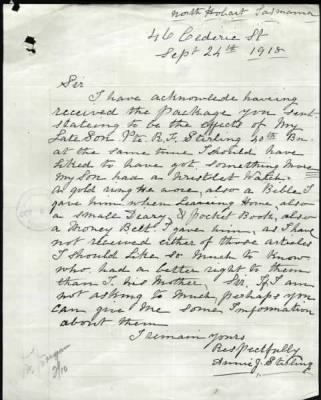 North Hobart Tasmania
46 Cederic St
Sept 24th 1918
Sir
I have acknowlede having
received the package you sent
stateing to be the effects of My
Late Son Pte R. F. Stirling 40th Bn
at the same time I should have
liked to have got something more
My Son had an Wristlet Watch
a gold ring He wore, also a Belle I
gave him when leaving Home, also
a small Deary, & Pocket Book, also
a Money Belt I gave him, as I have
not received either of those articles
I should like so much to know
who had an better right to them
than I. his Mother, Sir If I am
not asking to much perhaps you
can give me some Information
about them
I remain yours
Respectfully
Annie J. Stirling
2/10